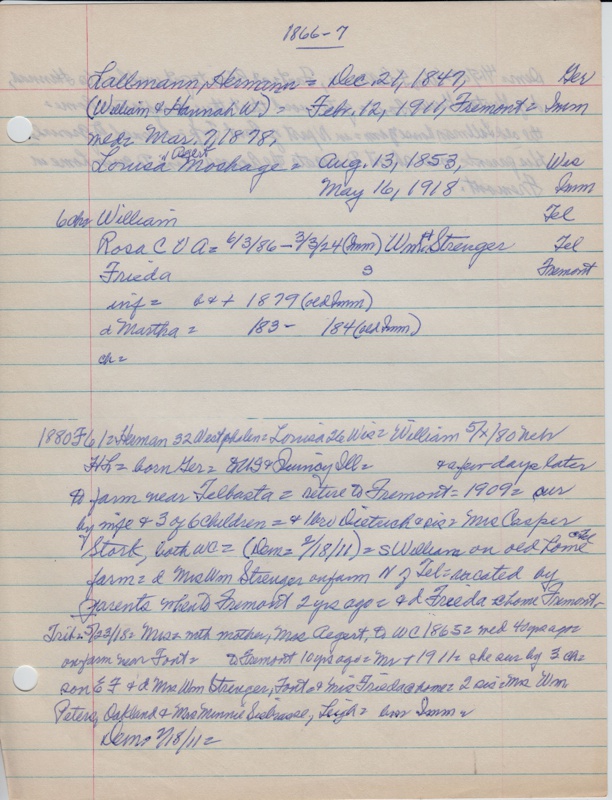 1866-7
Lallmann, Hermann = Dec. 21, 1847, Ger
(William & Hannah W.) = Febr. 12, 1911, Fremont = Imm
med = Mar. 7, 1878,
Louisa Aegert Moshage = Aug. 13, 1853, Wis
May 16, 1918 Imm
6 chr William Tel
Rosa C V A = 6/3/86 - 3/3/24 (Imm) Wm H Strenger Tel
Frieda 3 Fremont
inf = b & + 1879 (old Imm)
d Martha = 183- 184 (old Imm)
ch =
1880 F61 = Herman 32 Westphalen = Louisa 26 Wis = William 5/x/80 Nebr
HL = born Ger = to US & Quincy Ill = & a few days later
to farm near Telbasta = retire to Fremont = 1909 = sur
by wife & 3 of 6 children = & 1 bro Dietrich & sis = Mrs Casper
Stork, both WC = (Dem = 2/18/11) = s William on old home
farm = d Mrs Wm Strenger on farm N of Tel = vacated by
parents when to Fremont 2 yrs ago = & d Frieda @ home Fremont,
Trib = 5/23/18 = Mrs = with mother, Mrs Aegert, to WC 1865 = med 40 yrs ago =
on farm near Font = to Fremont 10 yrs ago = Mr + 1911 = she sur by 3 ch =
son E F & d Mrs Wm Strenger, Font & Miss Frieda @ home = 2 sis = Mrs Wm
Peters, Oakland & Mrs Minnie, Leigh = bur Imm =
Dem = 2/18/11 =